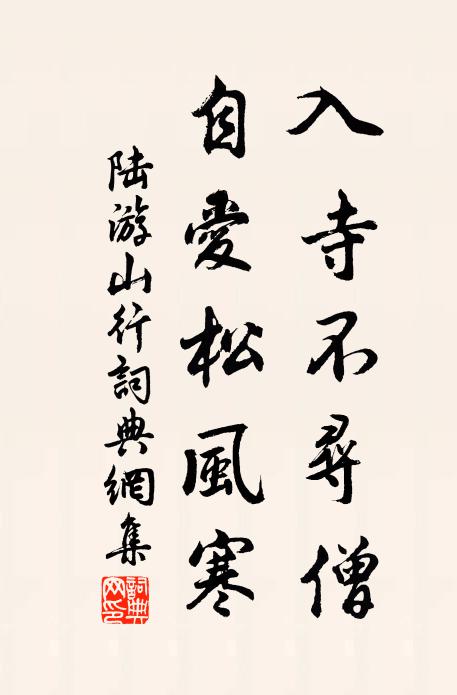 入寺不尋僧
自愛松風寒
陆游山行詞典網集
詞典网印